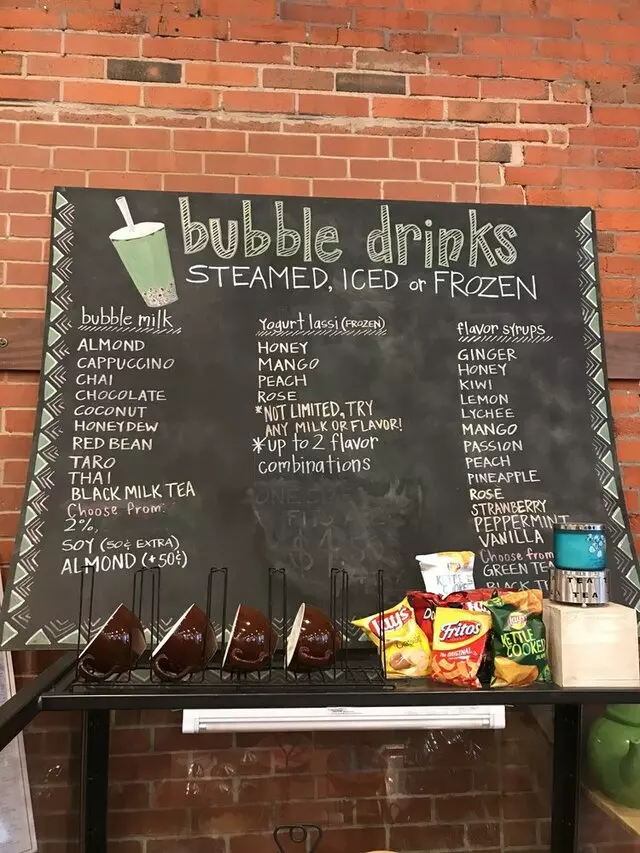 bubble drinks
STEAMED, ICED or FROZEN
bubble milk
ALMOND
CAPPUCCINO
CHAI
CHOCOLATE
COCONUT
HONEYDEW
RED BEAN
TARO
THAI
BLACK MILK TEA
Choose from:
2%,
SOY (50¢ EXTRA)
ALMOND (+50¢)
Yogurt lassi (FROZEN)
HONEY
MANGO
PEACH
ROSE
*NOT LIMITED, TRY
ANY MILK OR FLAVOR!
*up to 2 flavor
combinations
flavor syrups
GINGER
HONEY
KIWI
LEMON
LYCHEE
MANGO
PASSION
PEACH
PINEAPPLE
ROSE
STRAWBERRY
PEPPERMINT
VANILLA
Choose from
GREEN TEA
BLACK
TEA
Lay's
Fritos
ORIGINAL
Lay's
KETTLE
COOKED